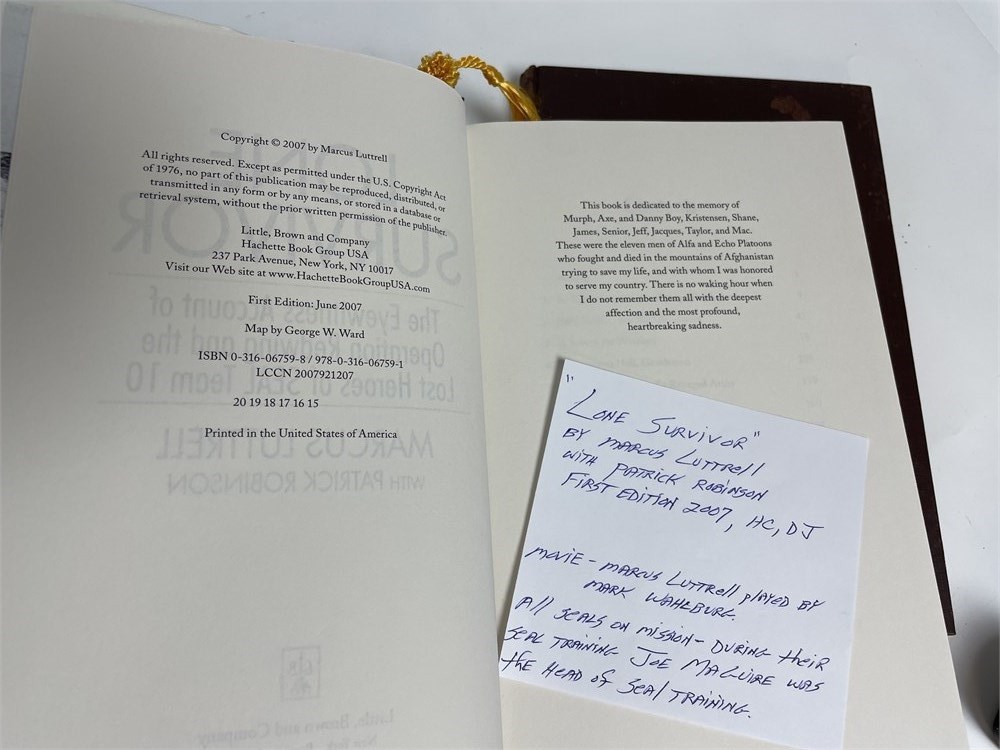 Copyright © 2007 by Marcus Luttrell
All rights reserved. Except as permitted under the U.S. Copyright Act
of 1976, no part of this publication may be reproduced, distributed, or
transmitted in any form or by any means, or stored in a database or
retrieval system, without the prior written permission of the publisher.
Little, Brown and Company
Hachette Book Group USA
237 Park Avenue, New York, NY 10017
Visit our Web site at www.HachetteBookGroupUSA.com
First Edition: June 2007
Map by George W. Ward
ISBN 0-316-06759-8 / 978-0-316-06759-1
LCCN 2007921207
20 19 18 17 16 15
Printed in the United States of America
This book is dedicated to the memory of
Murph, Axe, and Danny Boy, Kristensen, Shane,
James, Senior, Jeff, Jacques, Taylor, and Mac.
These were the eleven men of Alfa and Echo Platoons
who fought and died in the mountains of Afghanistan
trying to save my life, and with whom I was honored
to serve my country. There is no waking hour when
I do not remember them all with the deepest
affection and the most profound,
heartbreaking sadness.
"LONE SURVIVOR"
BY MARCUS LUTTRELL
WITH PATRICK ROBINSON
FIRST EDITION 2007, HC, DJ
MOVIE - MARCUS LUTTRELL PLAYED BY
MARK WAHLBURG.
All SEALS ON MISSION - DURING THEIR
SEAL TRAINING JOE MAGUIRE WAS
THE HEAD OF SEAL TRAINING.
LONE
SURVIVOR
The Eyewitness Account of
Operation Redwing and the
Lost Heroes of SEAL Team 10
MARCUS LUTTRELL
WITH PATRICK ROBINSON
Little, Brown and Company